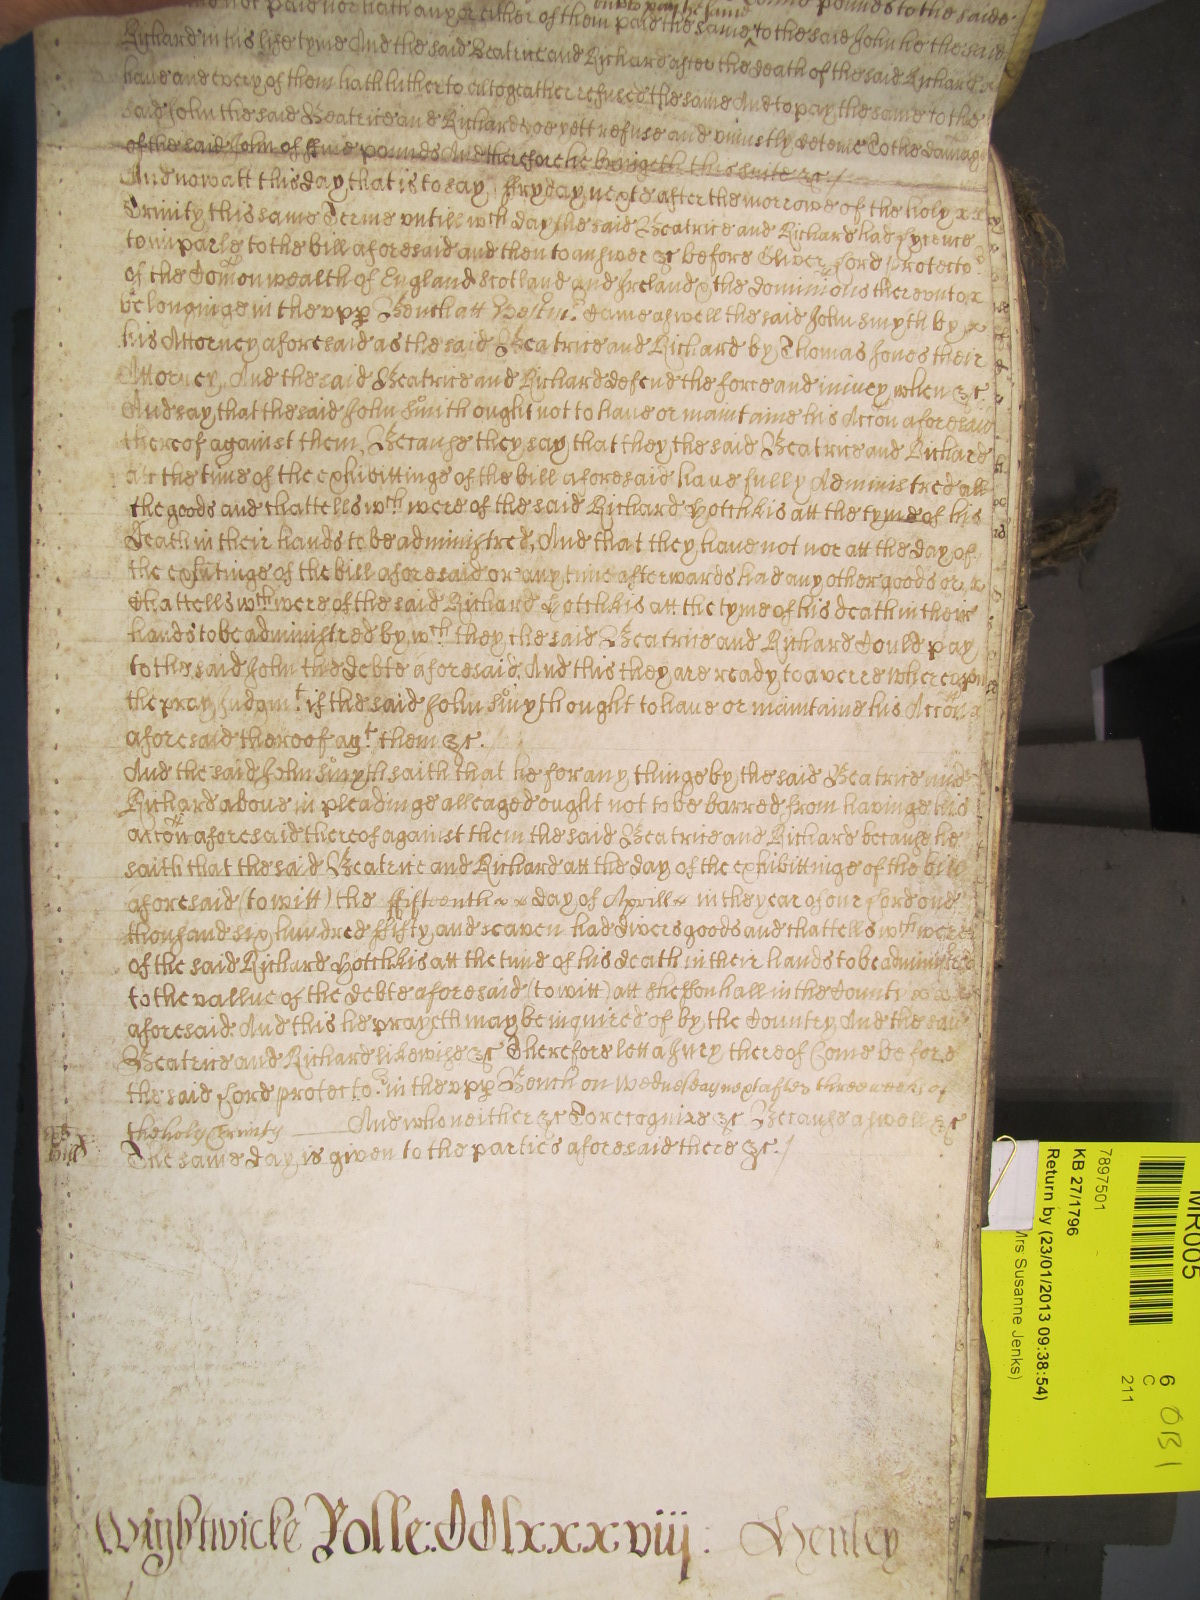 not paid nor hath any or either of them paid the same to the said John he the said
Richard in his life tyme And the said Beatrice and Richard after the death of the said Richard
have and every of them hath hitherto altogeather refused the same And to pay the same to the
said John the said Beatrice and Richard doe yett refuse and uniustly deteine To the damage
of the said John of five pounds And therefore he bringeth this suite &c /
And now att this day that is to say ffryday nexte after the morrowe of the holy
Trinity this same Terme untill wch day the said Beatrice and Richard had lycence
to imparle to the bill aforesaid and then to answer &c before Oliver Lord Protector
of the Comonwealth of England Scotland and Ireland & the dominions thereunto
belonginge in the upp Bench att Westmr Came aswell the said John Smyth by
his Attorney aforesaid as the said Beatrice and Richard by Thomas Jones their
Attorney And the said Beatrice and Richard defend the force and iniury when &c
And say that the said John Smith ought not to have or maintaine his Accon aforesaid
thereof against them Because they say that they the said Beatrice and Richard
att the time of the exhibittinge of the bill aforesaid have fully Administred all
the goods and chattells wch were of the said Richard Hotchkis att the tyme of his
Death in their hands to be administred And that they have not nor att the day of
the exhitinge of the bill aforesaid or any time afterwards had any other goods or
Chattells wch were of the said Richard Hotchkis att the tyme of his death in their
hands to be administred by wch they the said Beatrice and Richard Could pay
to the said John the Debte aforesaid And this they are ready to averre whereupon
the pray Judgmt if the said John Smyth ought to have or maintaine his Accon
aforesaid thereof agt them &c.
And the said John Smyth saith that he for any thinge by the said Beatrice and
Richard above in pleadinge alleaged ought not to be barred from havinge his
accon aforesaid thereof against them the said Beatrice and Richard because he
saith that the said Beatrice and Richard att the day of the exhibittinge of the bill
aforesaid (to witt) the ffifteenth day of Aprill in the year of our Lord one
thousand six hundred fifty and seaven had divers goods and chattells wch were
of the said Richard Hotchkis att the time of his death in their hands to be administred
to the vallue of the debte aforesaid (to witt) att in the County
aforesaid And this he prayeth may be inquired of by the Country And the said
Beatrice and Richard likewise &c Therefore lett a Jury thereof Come before
the said Lord protector in the upp Bench on Wednesday next after three weeks of
the holy Trinity And who neither &c To recognize &c Because aswell &c
The same day is given to the parties aforesaid there &c. /
Wightwicke Rolle: lxxxviij: Henley
MR005
7897501
KB 27/1796
Return by (23/01/2013 09:38:54)
Mrs Susanne Jenks)
6
C
211
OB1